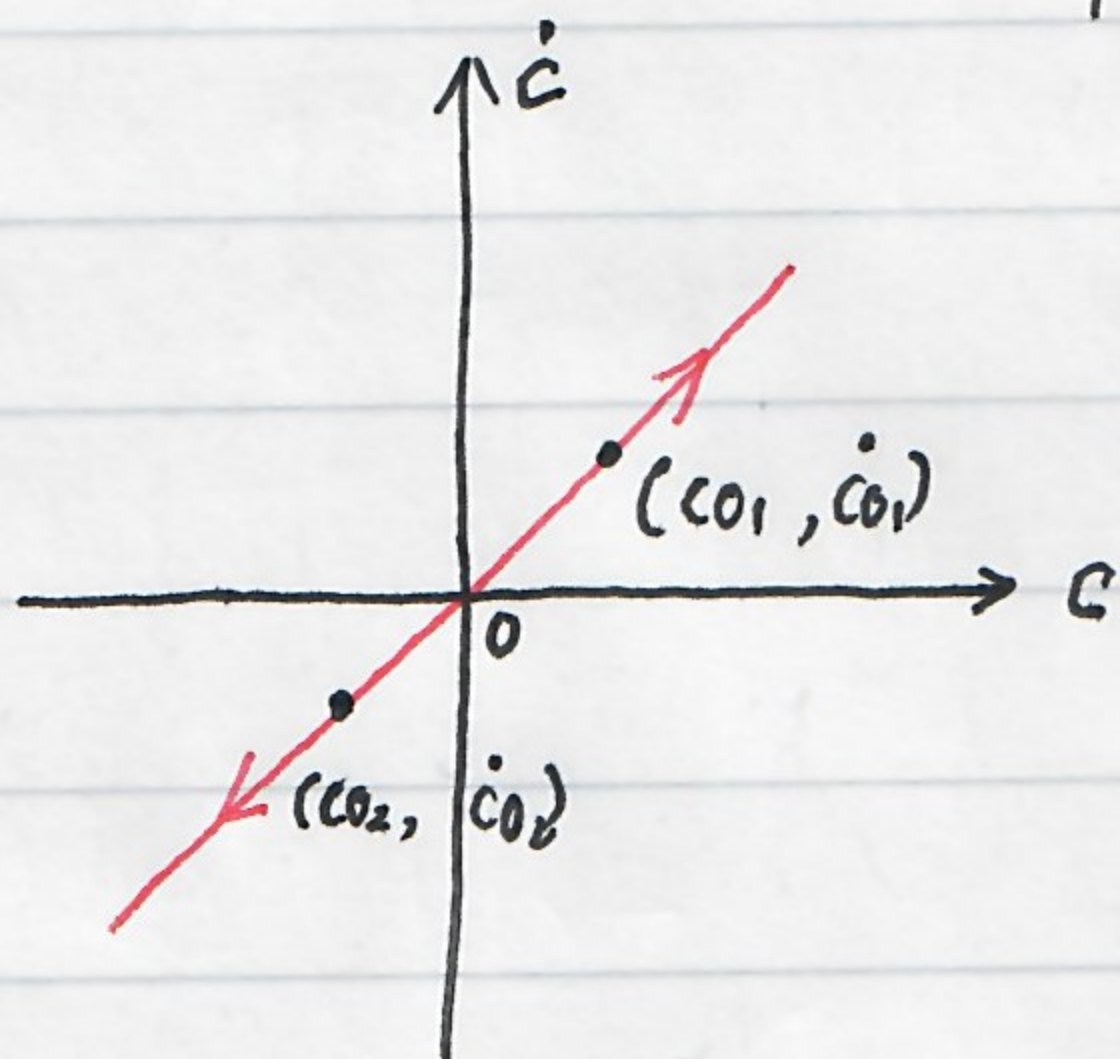 ċ
(c01, ċ01)
c
0
(c02, ċ02)